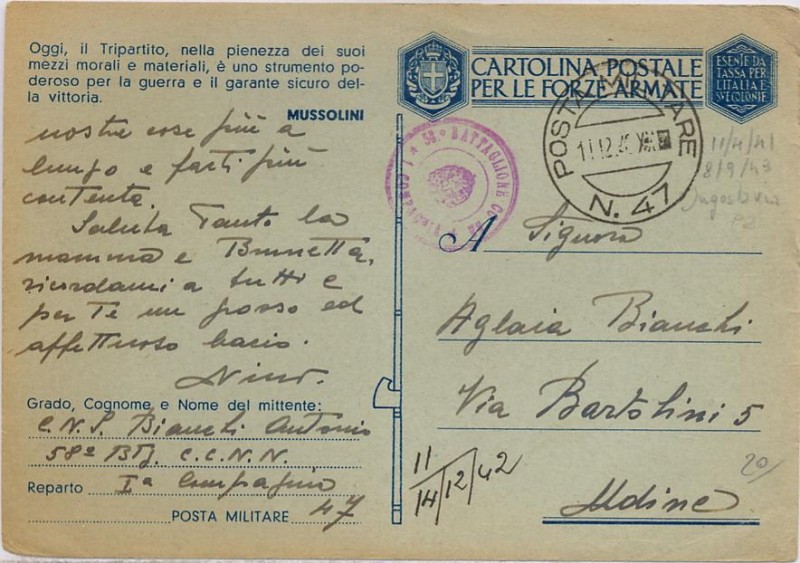 Oggi, il Tripartito, nella pienezza dei suoi
mezzi morali e materiali, è uno strumento po-
deroso per la guerra e il garante sicuro del-
la vittoria.
MUSSOLINI
nostre cose più a
lungo e farti più
contenta.
Saluta Tanto la
mamma e Brunetta,
ricordami a tutti e
per Te un grosso ed
affettuoso bacio.
Nino.
Grado, Cognome e Nome del mittente:
C.N.S. Bianchi Antonio
58ª Btg. C.C.N.N.
Reparto Iª Compagnia
POSTA MILITARE 47
CARTOLINA POSTALE
PER LE FORZE ARMATE
ESENTE DA
TASSA PER
L'ITALIA E
SVE COLONIE
POSTA MILITARE
11.12.42 XXI
N. 47
58° BATTAGLIONE
11/4/41
8/9/43
Jugoslavia
P2
A Signora
Aglaia Bianchi
Via Bartolini 5
Udine
11
14/12/42
20/